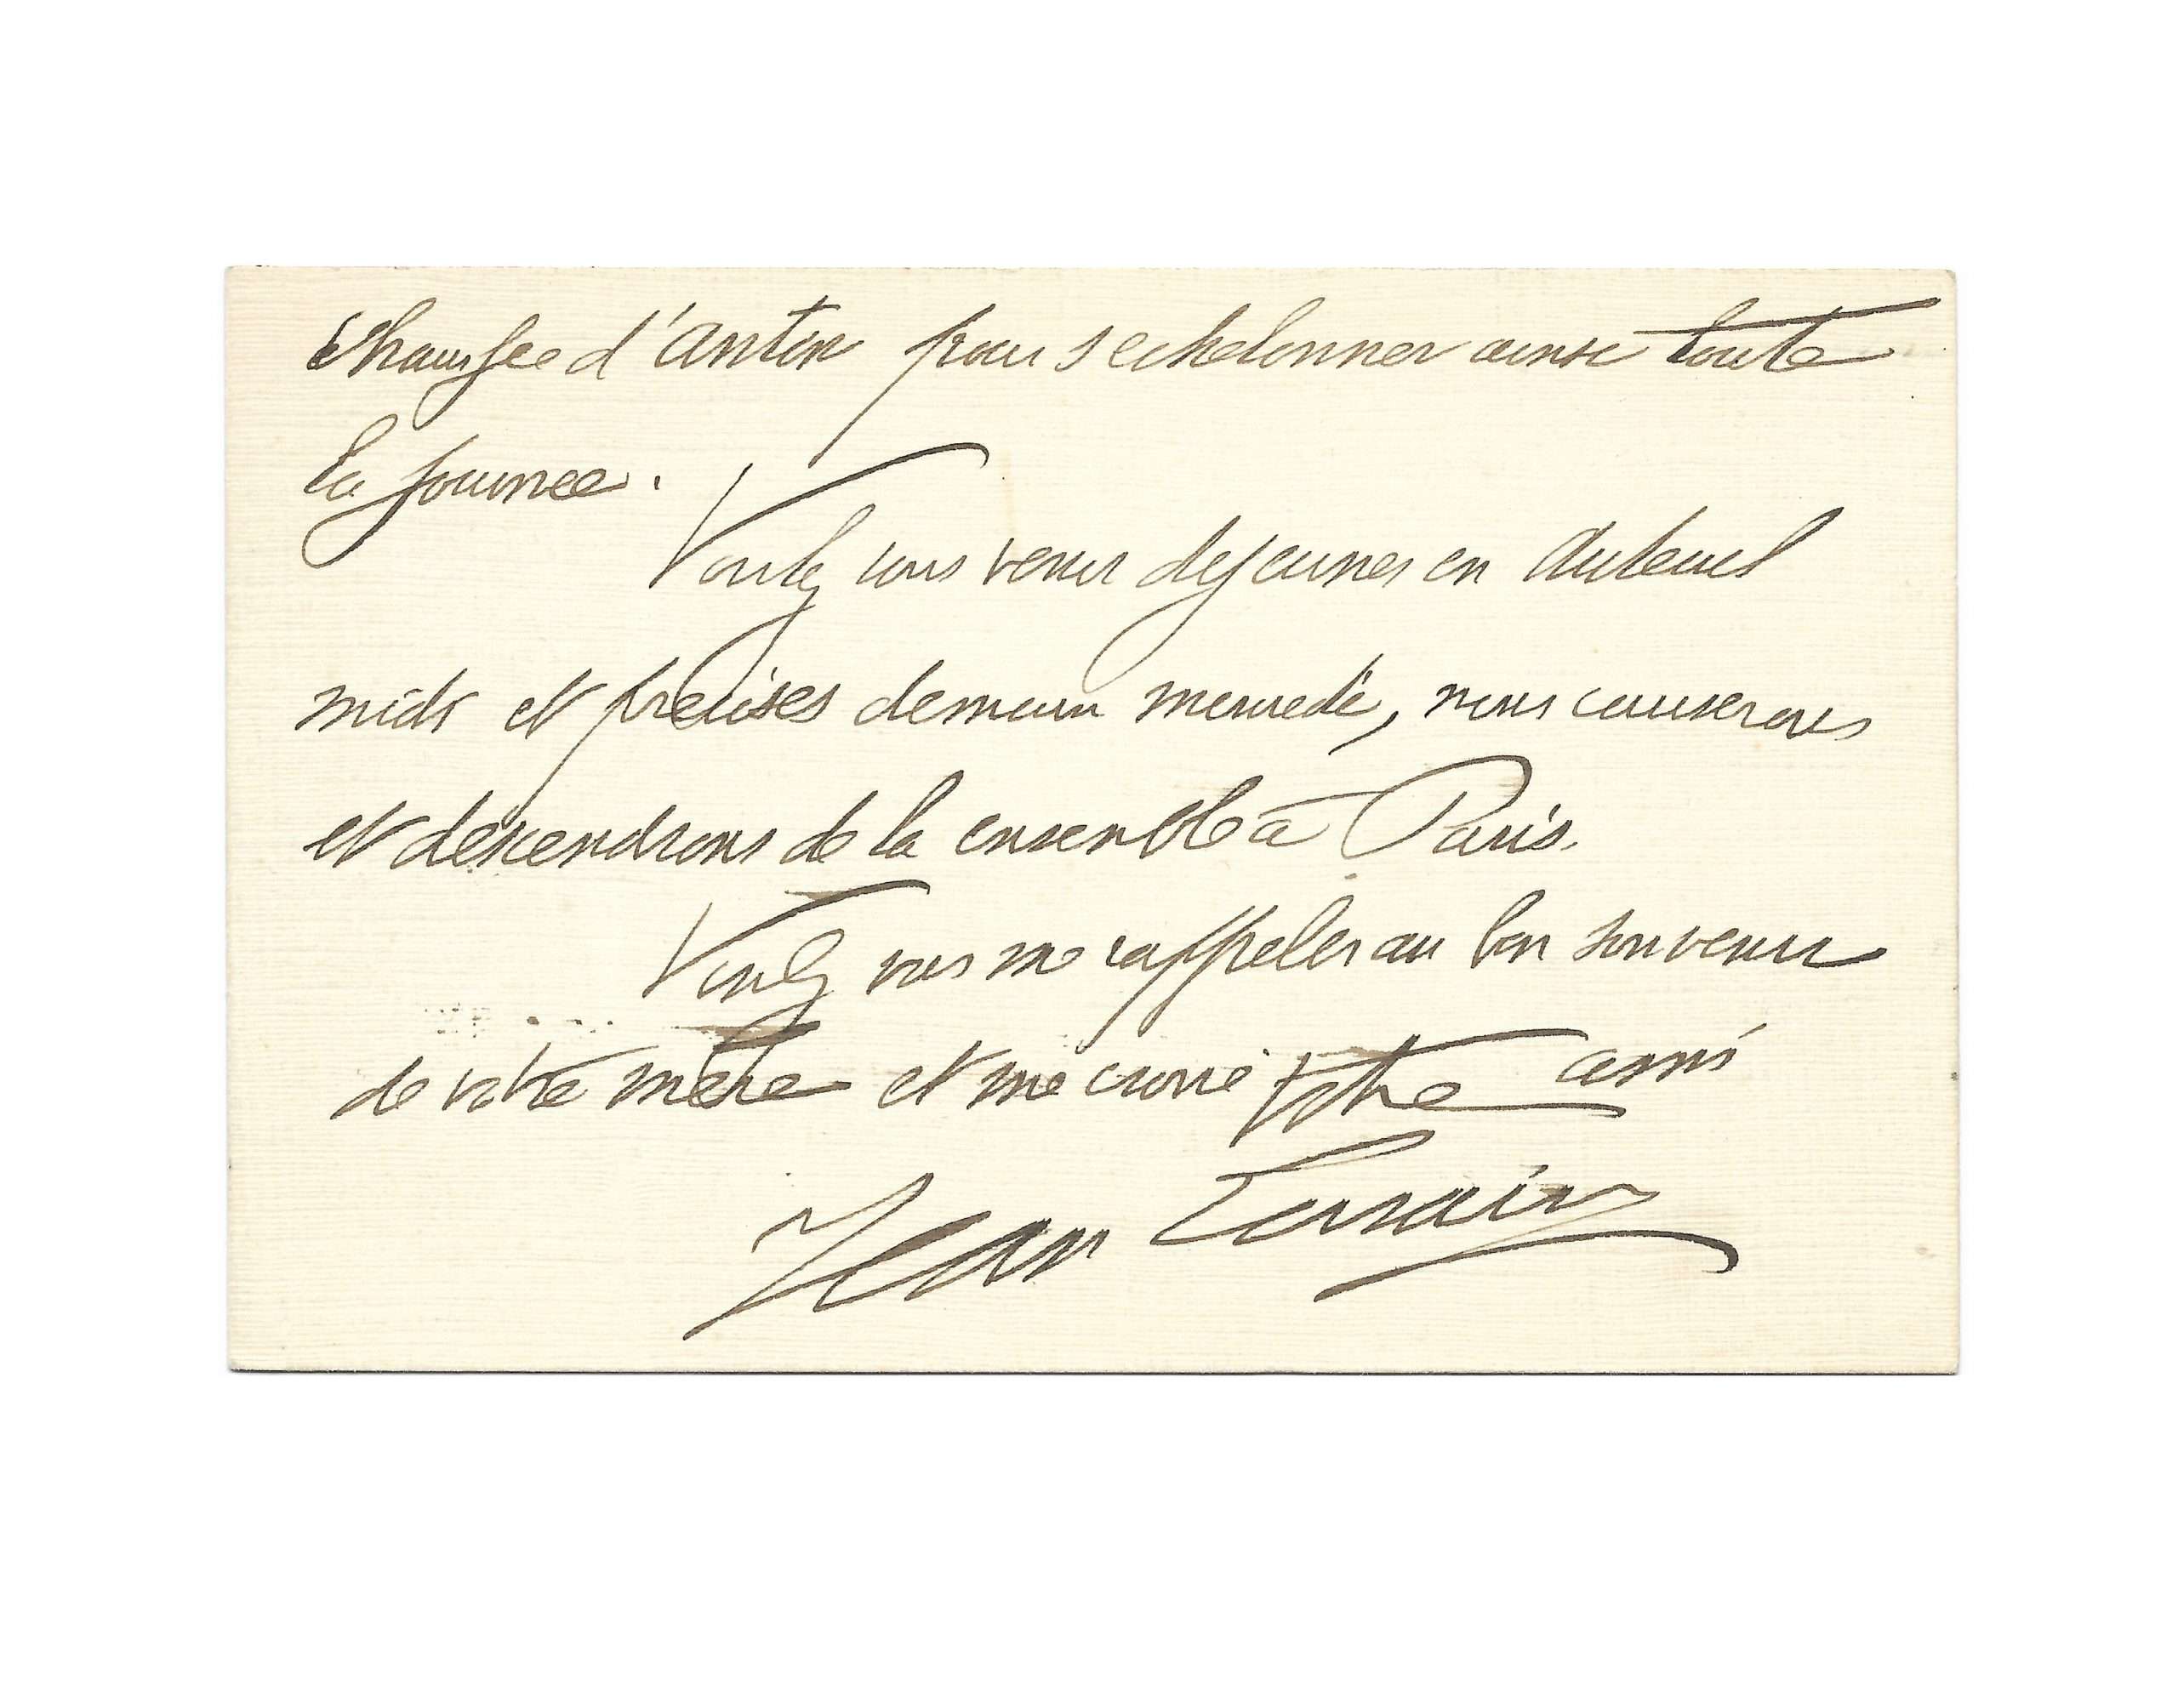 Chaussée d'Antin pour s'echelonner ainsi toute
la journee.
Voulez vous venir dejeuner en Auteuil
midi et precises demain mercredi, nous causerons
et descendrons de la ensemble à Paris.
Voulez vous me rappeler au bon souvenir
de votre mere et me croire votre ami
Jean Lorrain